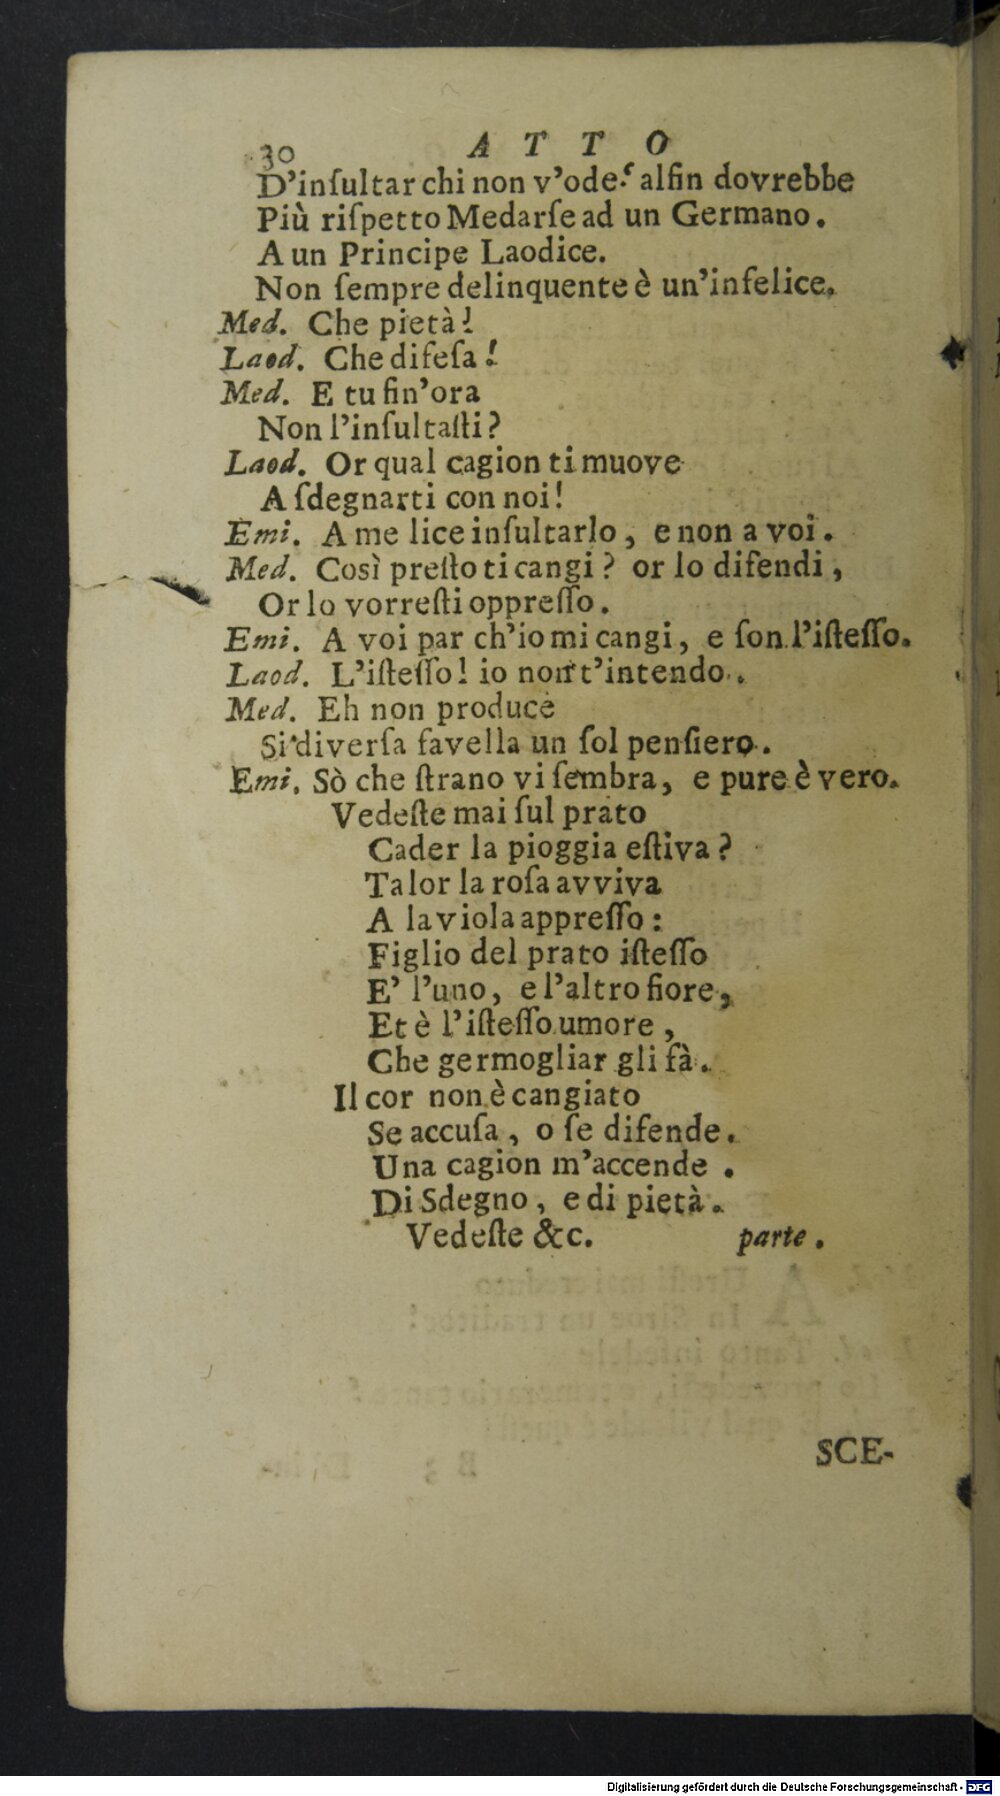 30 ATTO
D'inſultar chi non v'ode? alfin dovrebbe
Più riſpetto Medarſe ad un Germano.
A un Principe Laodice.
Non ſempre delinquente è un'infelice.
Med. Che pietà!
Laod. Che difeſa!
Med. E tu fin'ora
Non l'inſultaſti?
Laod. Or qual cagion ti muove
A ſdegnarti con noi!
Emi. A me lice inſultarlo, e non a voi.
Med. Così preſto ti cangi? or lo difendi,
Or lo vorreſti oppreſſo.
Emi. A voi par ch'io mi cangi, e ſon l'iſteſſo.
Laod. L'iſteſſo! io non t'intendo.
Med. Eh non produce
Si diverſa favella un ſol penſiero.
Emi. Sò che ſtrano vi ſembra, e pure è vero.
Vedeſte mai ſul prato
Cader la pioggia eſtiva?
Talor la roſa avviva
A la viola appreſſo:
Figlio del prato iſteſſo
E' l'uno, e l'altro fiore,
Et è l'iſteſſo umore,
Che germogliar gli fà.
Il cor non è cangiato
Se accuſa, o ſe difende.
Una cagion m'accende.
Di Sdegno, e di pietà.
Vedeſte &c. parte.
SCE-
Digitalisierung gefördert durch die Deutsche Forschungsgemeinschaft - DFG